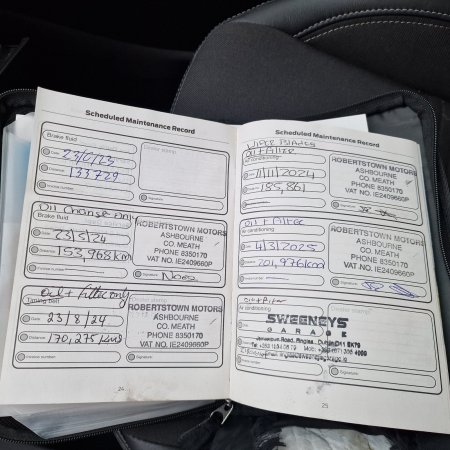 Scheduled Maintenance Record
Brake fluid
Dealer stamp
Date:
Distance:
133,729
Invoice number:
Signature:
Oil Change only
Brake fluid
Date:
23/5/24
Distance:
153,968km
Invoice number:
Signature:
ROBERTSTOWN MOTORS
ASHBOURNE
CO. MEATH
PHONE 8350170
VAT NO. IE2409660P
Oil + Filter only
Timing belt
Date:
23/8/24
Distance:
170,275 km
Invoice number:
Signature:
ROBERTSTOWN MOTORS
ASHBOURNE
CO. MEATH
PHONE 8350170
VAT NO. IE2409660P
24
Scheduled Maintenance Record
WIPER BLADES
OIL + FILTER
Air conditioning
11/11/2024
185,861
Signature:
ROBERTSTOWN MOTORS
ASHBOURNE
CO. MEATH
PHONE 8350170
VAT NO. IE2409660P
Oil + Filter
Air conditioning
4/3/2025
201,976km
Signature:
ROBERTSTOWN MOTORS
ASHBOURNE
CO. MEATH
PHONE 8350170
VAT NO. IE2409660P
Oil + Filter
Air conditioning
SWEENEYS
GARAGE
Invoice number:
Signature:
25